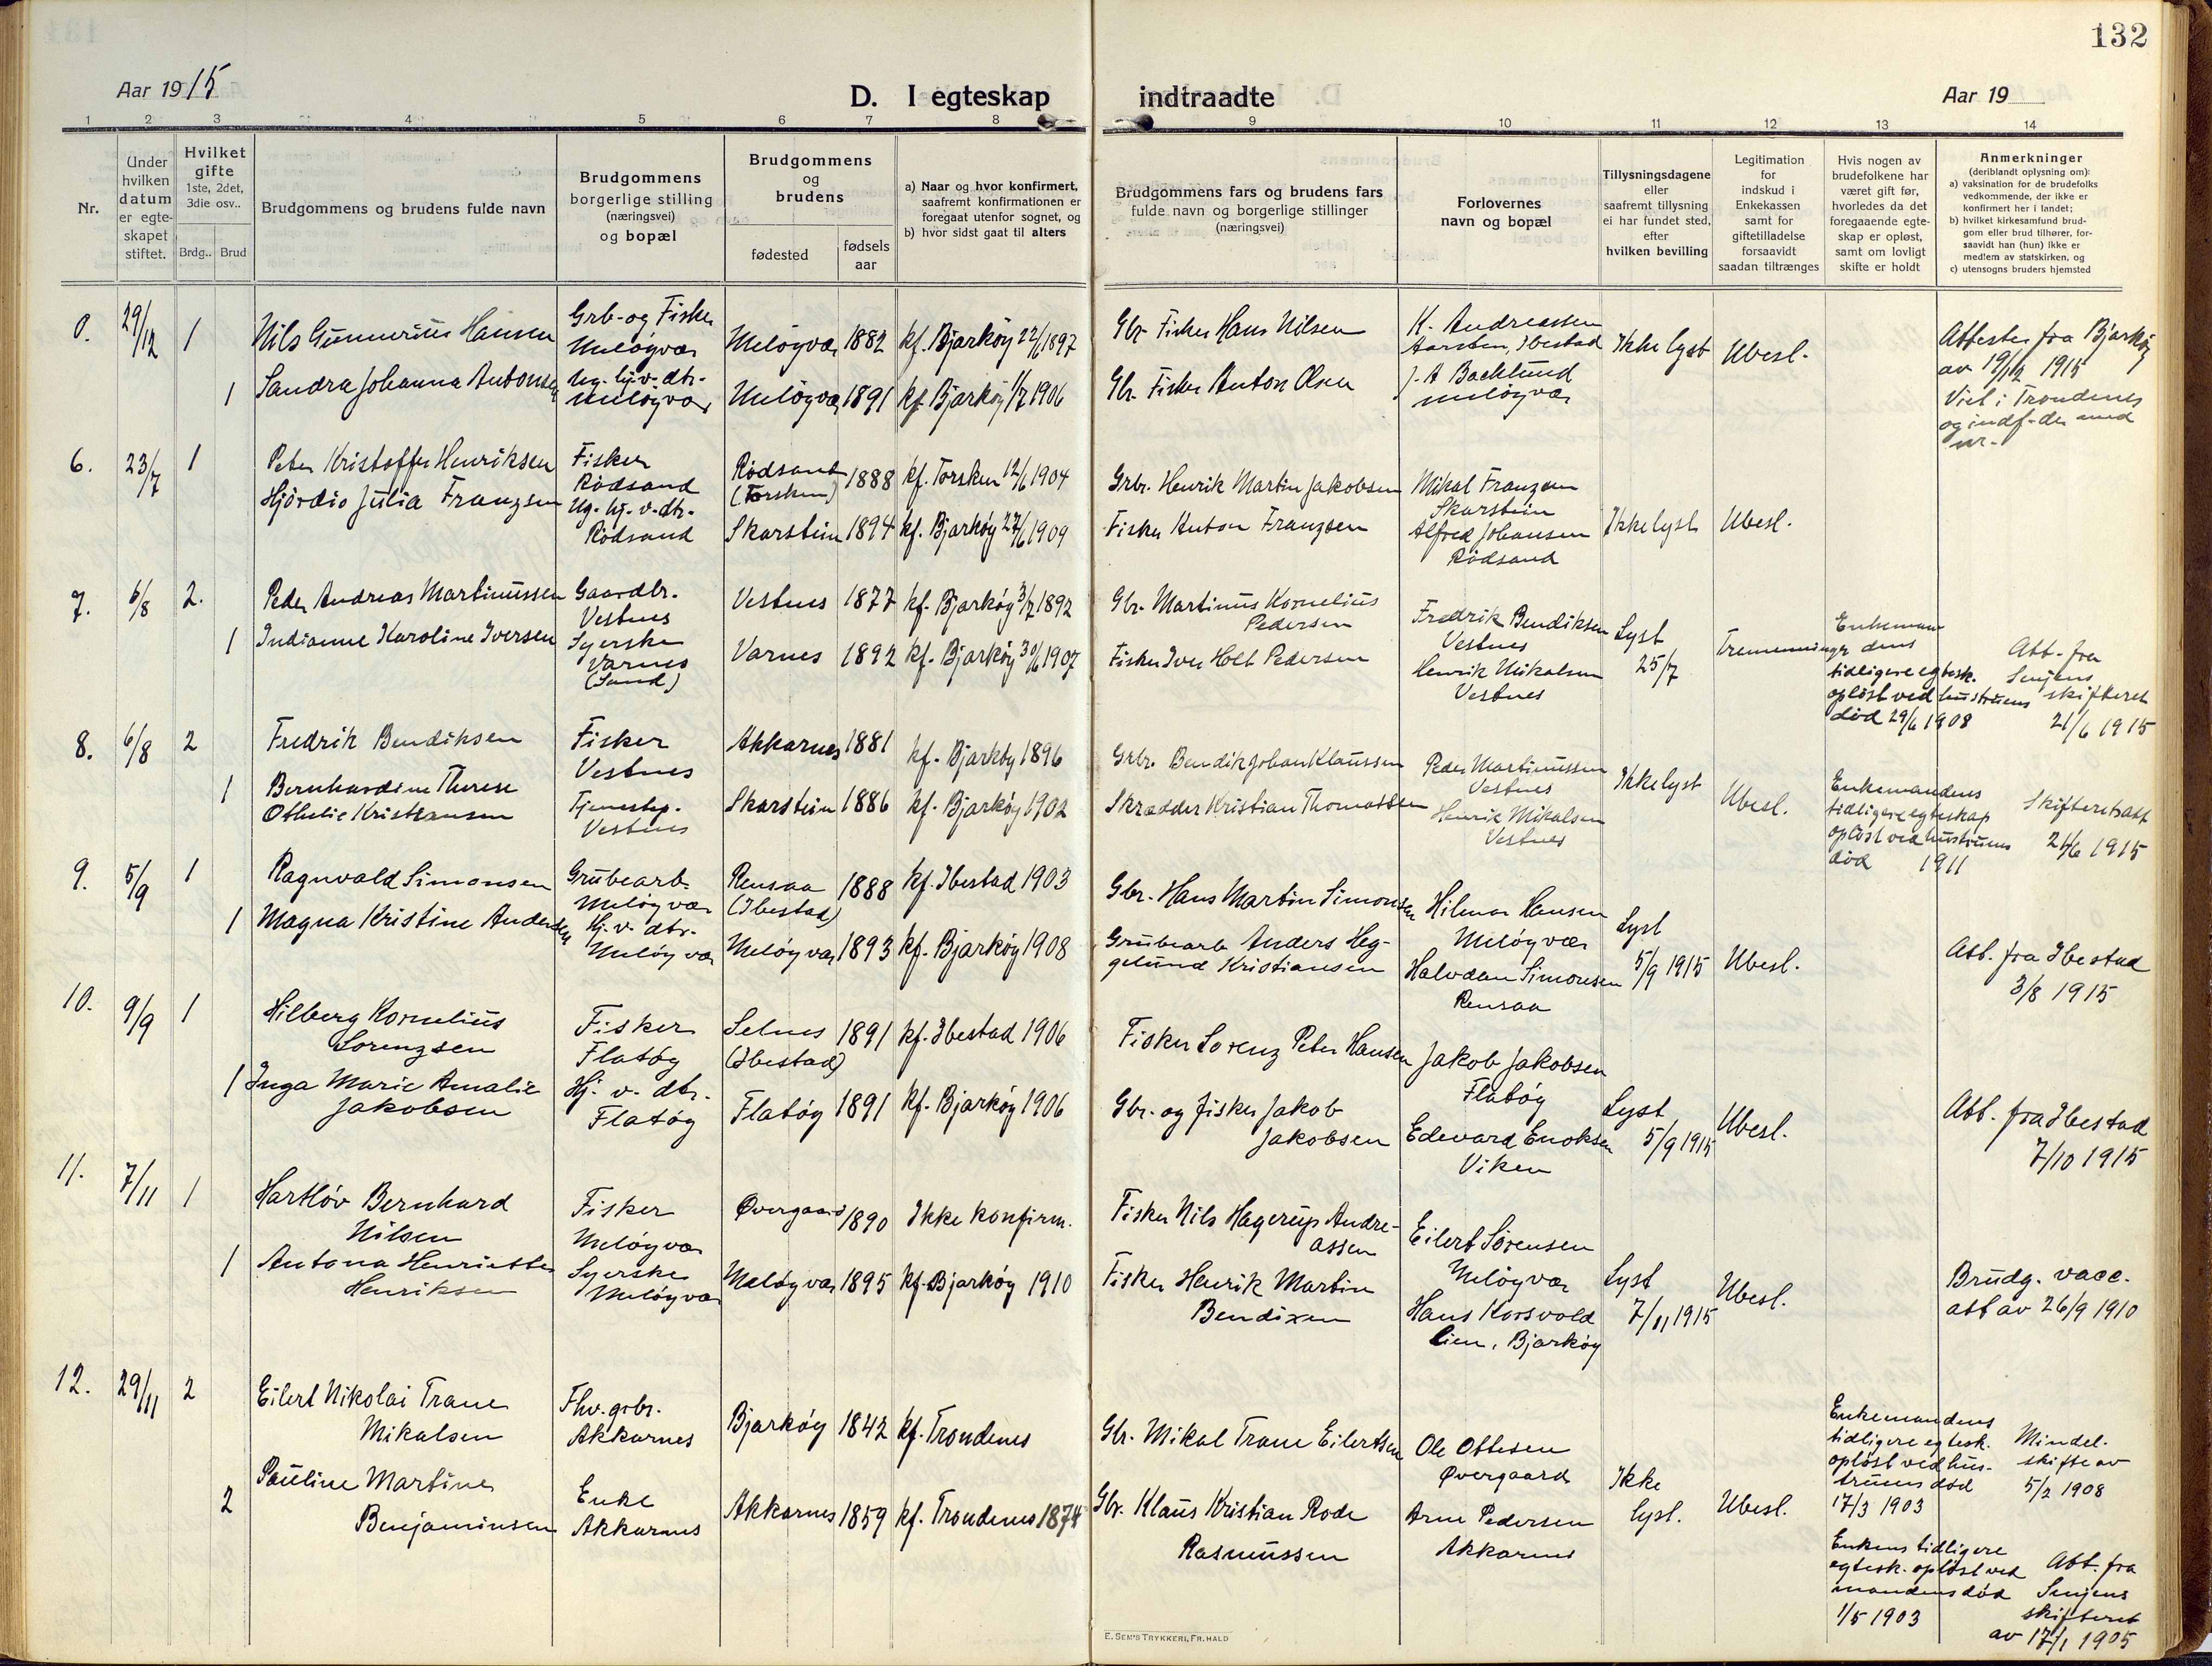 132
Aar 1915
D. I egteskap indtraadte
Aar 19
1 2 3 4 5 6 7 8 9 10 11 12 13 14
Nr.
Under
hvilken
datum
er egte-
skapet
stiftet.
Hvilket
gifte
1ste, 2det,
3die osv..
Brdg.. Brud
Brudgommens og brudens fulde navn
Brudgommens
borgerlige stilling
(næringsvei)
og bopæl
Brudgommens
og
brudens
fødested
fødsels
aar
a) Naar og hvor konfirmert,
saafremt konfirmationen er
foregaat utenfor sognet, og
b) hvor sidst gaat til alters
Brudgommens fars og brudens fars
fulde navn og borgerlige stillinger
(næringsvei)
Forlovernes
navn og bopæl
Tillysningsdagene
eller
saafremt tillysning
ei har fundet sted,
efter
hvilken bevilling
Legitimation
for
indskud i
Enkekassen
samt for
giftetilladelse
forsaavidt
saadan tiltrænges
Hvis nogen av
brudefolkene har
været gift før,
hvorledes da det
foregaaende egte-
skap er opløst,
samt om lovligt
skifte er holdt
Anmerkninger
(deriblandt oplysning om):
a) vaksination for de brudefolks
vedkommende, der ikke er
konfirmert her i landet;
b) hvilket kirkesamfund brud-
gom eller brud tilhører, for-
saavidt han (hun) ikke er
medlem av statskirken, og
c) utensogns bruders hjemsted
0. 29/12 1
Nils Gunnerius Hansen
Grb- og Fisker
Meløyvær
Meløyvær 1882 kf. Bjarkøy 22/6 1897
Gbr Fisker Hans Nilsen
K. Andreassen
Aarsten, Ibestad
Ikke lyst Ubesl.
Attester fra Bjarkøy
av 19/12 1915
1 Sandra Johanna Antonsen
Ug. hj. v. dtr.
Meløyvær
Meløyvær 1891 kf. Bjarkøy 1/7 1906
Gbr. Fisker Anton Olsen
J. A Backlund
Meløyvær
Viet i Trondenes
og indf. der med
nr.
6. 23/7 1
Peter Kristoffer Henriksen
Fisker
Rødsand
Rødsand
(Torsken)
1888 kf. Torsken 12/6 1904
Grbr. Henrik Martin Jakobsen
Mikal Franzsen
Skarstein
Hjördis Julia Franzsen
Ug. hj. v. dtr.
Rødsand
Skarstein 1894 kf. Bjarkøy 27/6 1909
Fisker Anton Franzsen
Alfred Johansen
Rødsand
Ikke lyst Ubesl.
7. 6/8 2.
Peder Andreas Martinussen
Gaardbr.
Vestnes
Vestnes 1877 kf. Bjarkøy 3/7 1892
Gbr. Martinus Kornelius
Pedersen
Fredrik Bendiksen
Vestnes
1 Indianne Karoline Iversen
Syerske
Varnes
(Sand)
Varnes 1892 kf. Bjarkøy 30/6 1907
Fisker Iver Holt Pedersen
Henrik Mikalsen
Vestnes
Lyst
25/7
Tremenninger
Enkeman
dens
tidligere egtesk.
opløst ved hustruens
død 29/6 1908
Att. fra
Senjens
skifteret
21/6 1915
8. 6/8 2
Fredrik Bendiksen
Fisker
Vestnes
Akkarnes 1881 kf. Bjarkøy 1896
Grbr. Bendik Johan Klaussen
Peder Martinussen
Vestnes
1 Bernhardine Therese
Othelie Kristiansen
Tjenestep.
Vestnes
Skarstein 1886 kf. Bjarkøy 1902
Skrædder Kristian Thomassen
Henrik Mikalsen
Vestnes
Ikke lyst Ubesl.
Enkemandens
tidligere egteskap
opløst ved hustruens
død 1911
Skifteretsatt
21/6 1915
9. 5/9 1
Ragnvald Simonsen
Grubearb.
Meløyvær
Rensaa
(Ibestad)
1888 kf. Ibestad 1903
Gbr. Hans Martin Simonsen
Hilmar Hansen
Meløyvær
1 Magna Kristine Andersen
Hj. v. dtr.
Meløyvær
Meløyvær 1893 kf. Bjarkøy 1908
Grubearb Anders Heg-
gelund Kristiansen
Halvdan Simonsen
Rensaa
Lyst
5/9 1915
Ubesl.
Att. fra Ibestad
3/8 1915
10. 9/9 1
Hilberg Kornelius
Lorenzsen
Fisker
Flatøy
Selnes
(Ibestad)
1891 kf. Ibestad 1906
Fisker Lorenz Peter Hansen
Jakob Jakobsen
Flatøy
1 Inga Marie Amalie
Jakobsen
Hj. v. dtr.
Flatøy
Flatøy 1891 kf. Bjarkøy 1906
Gbr. og fisker Jakob
Jakobsen
Edevard Enoksen
Viken
Lyst
5/9 1915
Ubesl.
Att. fra Ibestad
7/10 1915
11. 7/11 1
Hartløv Bernhard
Nilsen
Fisker
Meløyvær
Øvergaard 1890 Ikke konfirm.
Fisker Nils Hagerup Andre-
assen
Eilert Sørensen
Meløyvær
1 Antona Henriette
Henriksen
Syerske
Meløyvær
Meløyvær 1895 kf. Bjarkøy 1910
Fisker Henrik Martin
Bendixen
Hans Korsvold
Lien, Bjarkøy
Lyst
7/11 1915
Ubesl.
Brudg. vacc.
att av 26/9 1910
12. 29/11 2
Eilert Nikolai Trane
Mikalsen
Fhv. grbr.
Akkarnes
Bjarkøy 1842 kf. Trondenes
Gbr. Mikal Trane Eilertsen
Ole Ottesen
Øvergaard
2 Pauline Martine
Benjaminsen
Enke
Akkarnes
Akkarnes 1859 kf. Trondenes 1874
Gbr. Klaus Kristian Rode
Rasmussen
Arne Pedersen
Akkarnes
Ikke
lyst.
Ubesl.
Enkemandens
tidligere egtesk.
opløst ved hus-
truens død
17/3 1903
Mindel.
skifte av
5/2 1908
Enkens tidligere
egtesk. opløst ved
mandens død
1/5 1903
Att. fra
Senjens
skifteret
av 17/1 1905
E. SEM'S TRYKKERI, FR. HALD